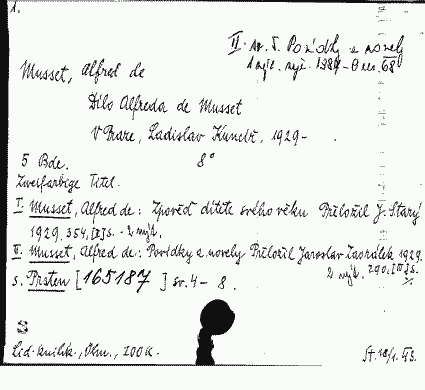 1.
II. sv. 5. Povídky a novely
1 výt.
Musset, Alfred de
Dílo Alfreda de Musset
V Praze, Ladislav Kuncíř, 1929-
8°
5 Bde.
Zweifarbige Titel.
I. Musset, Alfred de: Zpověď dítěte svého věku Přeložil J. Starý
1929. 354, [II] s. - 2 výt.
II. Musset, Alfred de: Povídky a novely Přeložil Jaroslav Zaorálek 1929.
2 výt. 290, [III] s.
s. Prsten [165187] sv. 4- 8.
S
Lid. knihk., Olom., 200 K.
St. 18/1. 43.